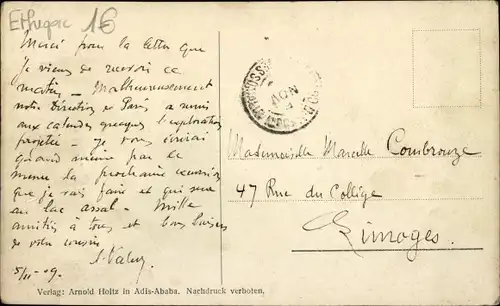 1€
Merci pour la lettre que
je viens de recevoir ce
matin. Malheureusement
notre Direction de Paris a remis
aux calendes grecques l'exploration
projetée - Je vous écrirai
quand même par ce
menu la prochaine excursion
que je vais faire et qui sera
au lac Assal - Mille
amitiés à tous et bons baisers
de votre cousin
5/11-09.
Mademoiselle Marcelle Combrouze
47 Rue du Collège
Limoges.
Verlag: Arnold Holtz in Adis-Ababa. Nachdruck verboten.